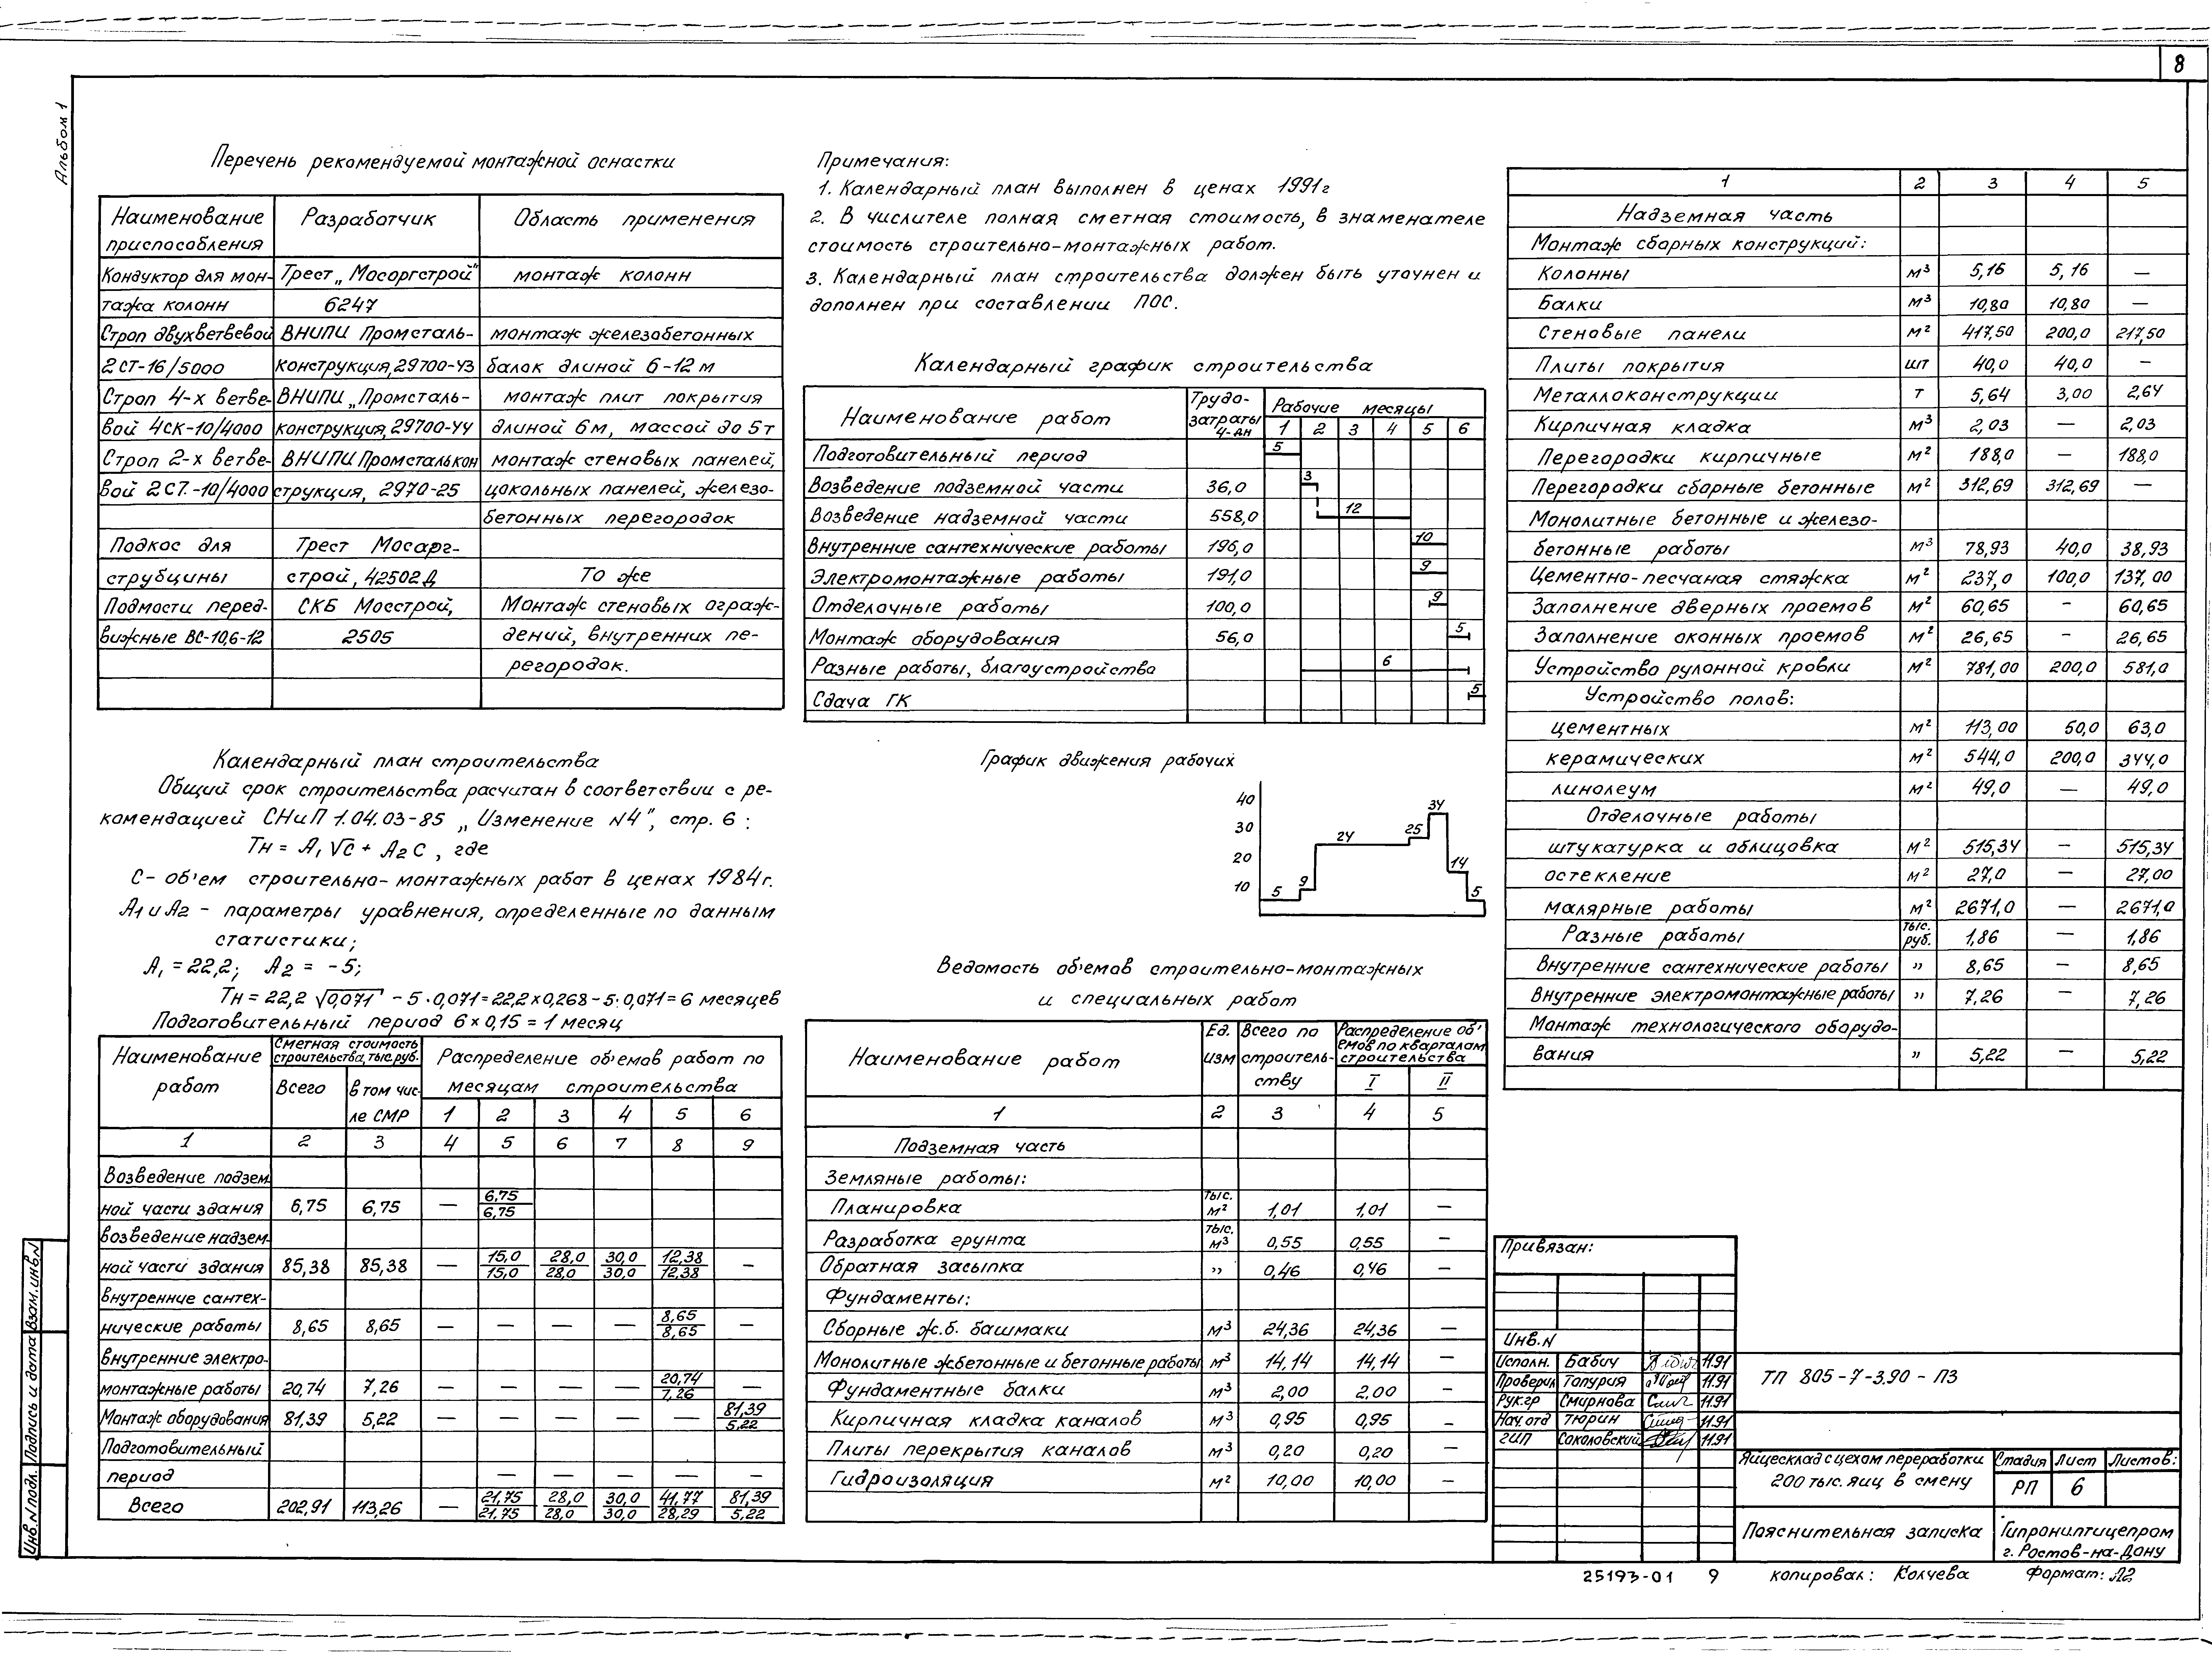 8
Альбом 1
Перечень рекомендуемой монтажной оснастки
Наименование приспособления | Разработчик | Область применения
Кондуктор для мон- | Трест „Мосоргстрой" | монтаж колонн
тажа колонн | 6247
Строп двухветвевой | ВНИПИ Промсталь- | монтаж железобетонных
2СТ-16/5000 | конструкция, 29700-43 | балок длиной 6-12 м
Строп 4-х ветве- | ВНИПИ „Промсталь- | монтаж плит покрытия
вой 4СК-10/4000 | конструкция, 29700-44 | длиной 6м, массой до 5т
Строп 2-х ветве- | ВНИПИ Промсталькон | монтаж стеновых панелей,
вой 2СТ.-10/4000 | струкция, 2970-25 | цокольных панелей, железо-
бетонных перегородок
Подкос для | Трест Мосорг-
струбцины | строй, 42502Д | То же
Подмости перед- | СКБ Мосстрой, | Монтаж стеновых ограж-
вижные ВС-10,6-12 | 2505 | дений, внутренних пе-
регородок.
Календарный план строительства
Общий срок строительства расчитан в соответствии с ре-
комендацией СНиП 1.04.03-85 „Изменение N4", стр. 6 :
Тн = А₁ √С + А₂ С , где
С - об'ем строительно-монтажных работ в ценах 1984г.
А1 и А2 - параметры уравнения, определенные по данным
статистики;
А₁ = 22,2; А₂ = -5;
Тн = 22,2 √0,071 - 5·0,071 = 22,2×0,268 - 5·0,071 = 6 месяцев
Подготовительный период 6×0,15 = 1 месяц
Наименование работ | Сметная стоимость строительства, тыс.руб. | Распределение об'емов работ по месяцам строительства
Всего | в том чис-ле СМР | 1 | 2 | 3 | 4 | 5 | 6
1 | 2 | 3 | 4 | 5 | 6 | 7 | 8 | 9
Возведение подзем-
ной части здания | 6,75 | 6,75 | — | 6,75/6,75
Возведение надзем-
ной части здания | 85,38 | 85,38 | — | 15,0/15,0 | 28,0/28,0 | 30,0/30,0 | 12,38/12,38 | —
Внутренние сантех-
нические работы | 8,65 | 8,65 | — | — | — | — | 8,65/8,65 | —
Внутренние электро-
монтажные работы | 20,74 | 7,26 | — | — | — | — | 20,74/7,26 | —
Монтаж оборудования | 81,39 | 5,22 | — | — | — | — | — | 81,39/5,22
Подготовительный
период | — | — | — | — | —
Всего | 202,91 | 113,26 | — | 21,75/21,75 | 28,0/28,0 | 30,0/30,0 | 41,77/28,29 | 81,39/5,22
Примечания:
1. Календарный план выполнен в ценах 1991г
2. В числителе полная сметная стоимость, в знаменателе
стоимость строительно-монтажных работ.
3. Календарный план строительства должен быть уточнен и
дополнен при составлении ПОС.
Календарный график строительства
Наименование работ | Трудо-затраты ч-дн | Рабочие месяцы
1 | 2 | 3 | 4 | 5 | 6
Подготовительный период | 5
Возведение подземной части | 36,0 | 3
Возведение надземной части | 558,0 | 12
Внутренние сантехнические работы | 196,0 | 10
Электромонтажные работы | 191,0 | 9
Отделочные работы | 100,0 | 9
Монтаж оборудования | 56,0 | 5
Разные работы, благоустройство | 6
Сдача ГК | 5
График движения рабочих
40
30
20
10
5 9 24 25 34 14 5
Ведомость об'емов строительно-монтажных
и специальных работ
Наименование работ | Ед. изм | Всего по строитель-ству | Распределение об'емов по кварталам строительства
I | II
1 | 2 | 3 | 4 | 5
Подземная часть
Земляные работы:
Планировка | тыс. м² | 1,01 | 1,01 | —
Разработка грунта | тыс. м³ | 0,55 | 0,55 | —
Обратная засыпка | " | 0,46 | 0,46 | —
Фундаменты:
Сборные ж.б. башмаки | м³ | 24,36 | 24,36 | —
Монолитные жбетонные и бетонные работы | м³ | 14,14 | 14,14 | —
Фундаментные балки | м³ | 2,00 | 2,00 | —
Кирпичная кладка каналов | м³ | 0,95 | 0,95 | —
Плиты перекрытия каналов | м³ | 0,20 | 0,20 | —
Гидроизоляция | м² | 10,00 | 10,00 | —
1 | 2 | 3 | 4 | 5
Надземная часть
Монтаж сборных конструкций:
Колонны | м³ | 5,16 | 5,16 | —
Балки | м³ | 10,80 | 10,80 | —
Стеновые панели | м² | 417,50 | 200,0 | 217,50
Плиты покрытия | шт | 40,0 | 40,0 | —
Металлоконструкции | т | 5,64 | 3,00 | 2,64
Кирпичная кладка | м³ | 2,03 | — | 2,03
Перегородки кирпичные | м² | 188,0 | — | 188,0
Перегородки сборные бетонные | м² | 312,69 | 312,69 | —
Монолитные бетонные и железо-
бетонные работы | м³ | 78,93 | 40,0 | 38,93
Цементно-песчаная стяжка | м² | 237,0 | 100,0 | 137,00
Заполнение дверных проемов | м² | 60,65 | - | 60,65
Заполнение оконных проемов | м² | 26,65 | - | 26,65
Устройство рулонной кровли | м² | 781,00 | 200,0 | 581,0
Устройство полов:
цементных | м² | 113,00 | 50,0 | 63,0
керамических | м² | 544,0 | 200,0 | 344,0
линолеум | м² | 49,0 | — | 49,0
Отделочные работы
штукатурка и облицовка | м² | 515,34 | — | 515,34
остекление | м² | 27,0 | — | 27,00
малярные работы | м² | 2671,0 | — | 2671,0
Разные работы | тыс. руб. | 1,86 | — | 1,86
Внутренние сантехнические работы | " | 8,65 | — | 8,65
Внутренние электромонтажные работы | " | 7,26 | — | 7,26
Монтаж технологического оборудо-
вания | " | 5,22 | — | 5,22
Привязан:
Инв.N
Исполн. | Бабич | 11.91
Проверил | Топурия | 11.91
Рук.гр | Смирнова | 11.91
Нач.отд | Тюрин | 11.91
ГИП | Соколовский | 11.91
ТП 805-7-3.90 - ПЗ
Яйцесклад с цехом переработки
200 тыс. яиц в смену
Стадия | Лист | Листов:
РП | 6
Пояснительная записка
Гипрониптицепром
г. Ростов-на-Дону
25193-01 9 копировал: Колчева Формат: А2
Инв.N подл. | Подпись и дата | Взам.инв.N